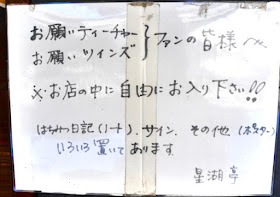 お願いティーチャー
お願いツインズ } ファンの皆様へ
※お店の中に自由にお入り下さい!!
はちみつ日記(ノート)、サイン、その他(ポスター)
いろいろ置いてあります
星湖亭